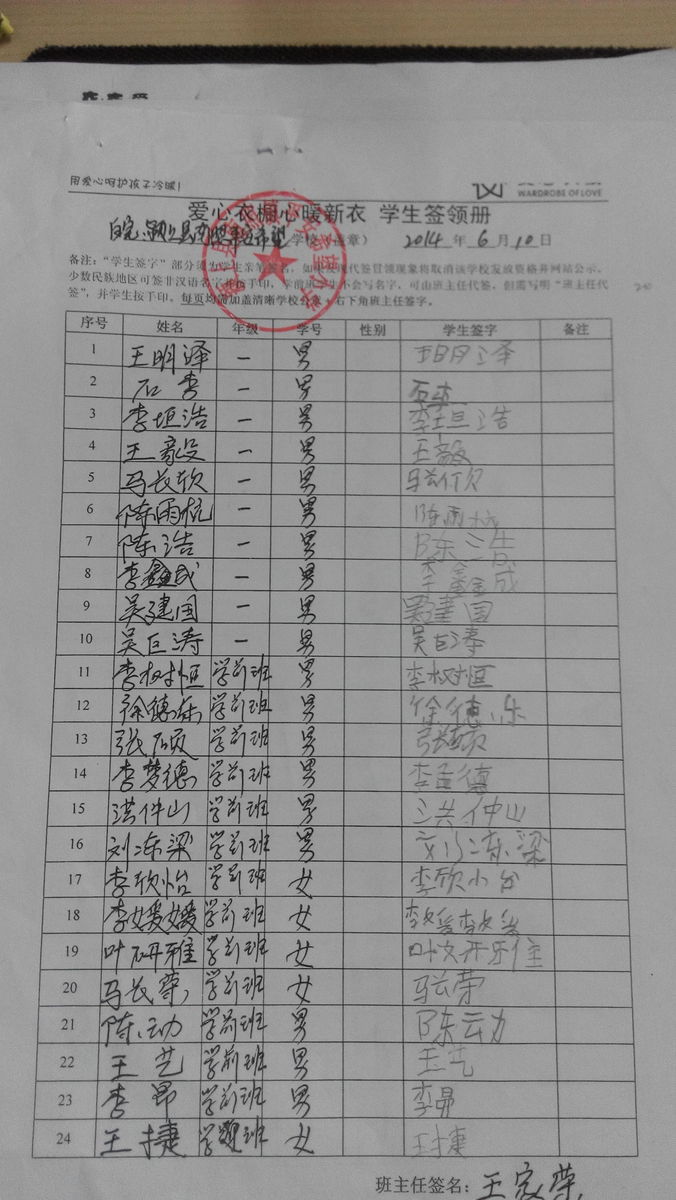 用爱心呵护孩子冷暖!
WARDROBE OF LOVE
爱心衣橱心暖新衣 学生签领册
2014 年 6 月 10 日
备注："学生签字"部分须为学生亲笔签名，如果发现代签冒领现象将取消该学校发放资格并网站公示。
少数民族地区可签非汉语名字并按手印，学前班学生不会写名字，可由班主任代签，但需写明"班主任代
签"，并学生按手印。每页均需加盖清晰学校公章、右下角班主任签字。
序号 姓名 年级 学号 性别 学生签字 备注
1 王明泽 一 男 王明泽
2 石李 一 男 石李
3 李垣浩 一 男 李垣浩
4 王毅 一 男 王毅
5 马长欣 一 男
6 陈雨杭 一 男 陈雨杭
7 陈浩 一 男 陈浩
8 李鑫成 一 男 李鑫成
9 吴建国 一 男 吴建国
10 吴巨涛 一 男 吴巨涛
11 李树恒 学前班 男 李树恒
12 徐德乐 学前班 男 徐德乐
13 张硕 学前班 男 张硕
14 李梦德 学前班 男 李孟德
15 洪仲山 学前班 男 洪仲山
16 刘冻梁 学前班 男 刘冻梁
17 李欣怡 学前班 女 李欣怡
18 李媛媛 学前班 女
19 叶研雅 学前班 女
20 马长荣 学前班 女
21 陈动 学前班 男 陈动
22 王艺 学前班 男 王艺
23 李昂 学前班 男 李昂
24 王捷 学前班 女 王捷
班主任签名：王家荣